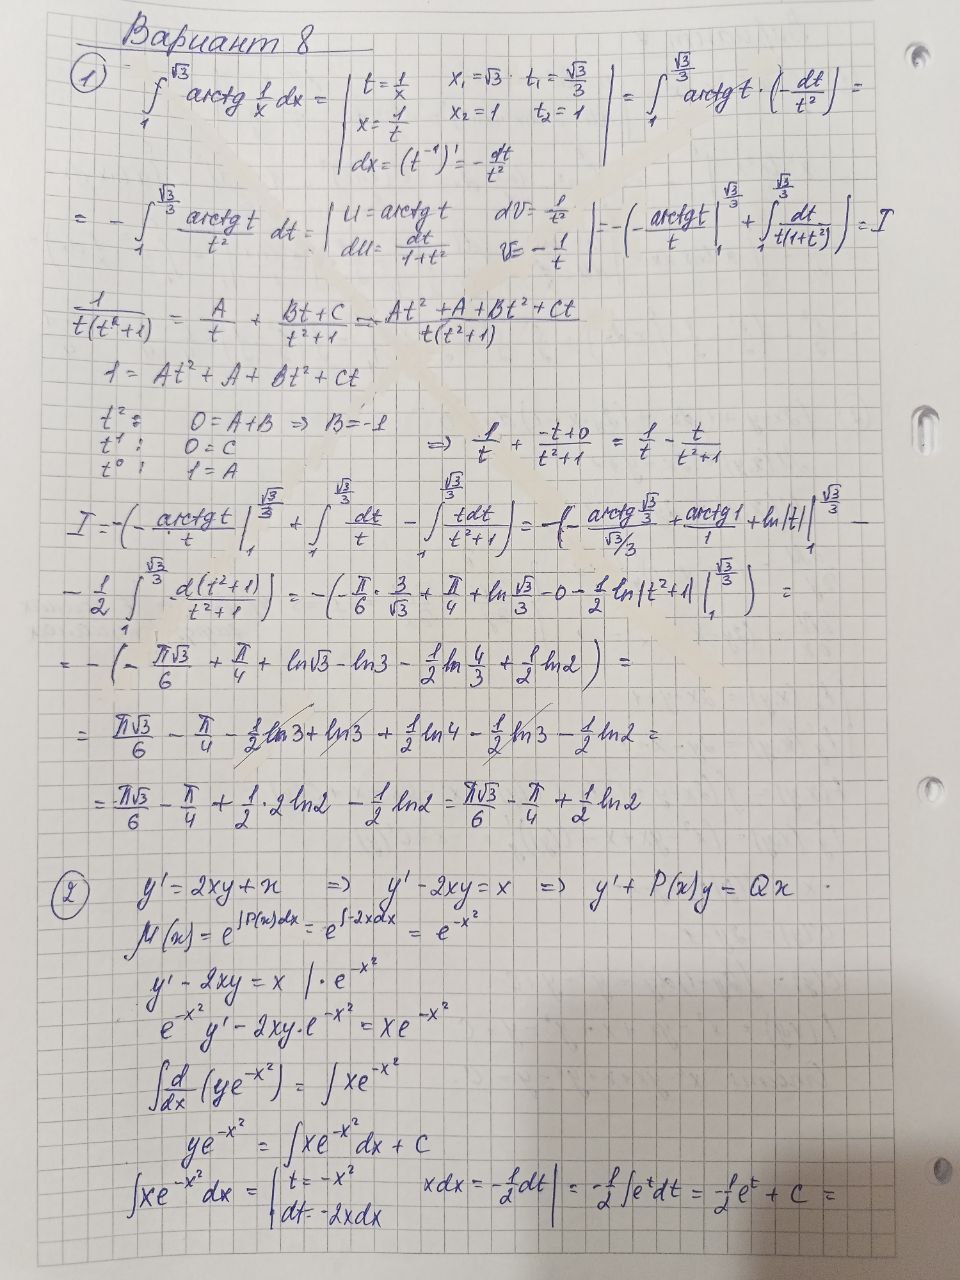 Вариант 8
① ∫₁^√3 arctg 1/x dx = | t = 1/x x₁ = √3 t₁ = √3/3 x = 1/t x₂ = 1 t₂ = 1 dx = (t⁻¹)' = -dt/t² | = ∫₁^(√3/3) arctg t · (-dt/t²) =
= - ∫₁^(√3/3) arctg t/t² dt = | U = arctg t dV = 1/t² dU = dt/(1+t²) V = -1/t | = -(-arctg t/t |₁^(√3/3) + ∫₁^(√3/3) dt/(t(1+t²))) = I
1/(t(t²+1)) = A/t + (Bt+C)/(t²+1) = (At² + A + Bt² + Ct)/(t(t²+1))
1 = At² + A + Bt² + Ct
t²: 0 = A+B ⇒ B = -1
t¹: 0 = C ⇒ 1/t + (-t+0)/(t²+1) = 1/t - t/(t²+1)
t⁰: 1 = A
I = -(-arctg t/t |₁^(√3/3) + ∫₁^(√3/3) dt/t - ∫₁^(√3/3) tdt/(t²+1)) = -(-arctg √3/3/(√3/3) + arctg 1/1 + ln|t| |₁^(√3/3) -
- 1/2 ∫₁^(√3/3) d(t²+1)/(t²+1)) = -(-π/6 · 3/√3 + π/4 + ln √3/3 - 0 - 1/2 ln|t²+1| |₁^(√3/3)) =
= -(-π√3/6 + π/4 + ln√3 - ln3 - 1/2 ln 4/3 + 1/2 ln2) =
= π√3/6 - π/4 - 1/2 ln3 + ln3 + 1/2 ln4 - 1/2 ln3 - 1/2 ln2 =
= π√3/6 - π/4 + 1/2 · 2 ln2 - 1/2 ln2 = π√3/6 - π/4 + 1/2 ln2
② y' = 2xy + x ⇒ y' - 2xy = x ⇒ y' + P(x)y = Qx
M(x) = e^(∫P(x)dx) = e^(∫-2xdx) = e^(-x²)
y' - 2xy = x | · e^(-x²)
e^(-x²) y' - 2xy · e^(-x²) = xe^(-x²)
∫ d/dx (ye^(-x²)) = ∫ xe^(-x²)
ye^(-x²) = ∫ xe^(-x²) dx + C
∫ xe^(-x²) dx = | t = -x² xdx = -1/2 dt dt = -2xdx | = -1/2 ∫ e^t dt = -1/2 e^t + C =